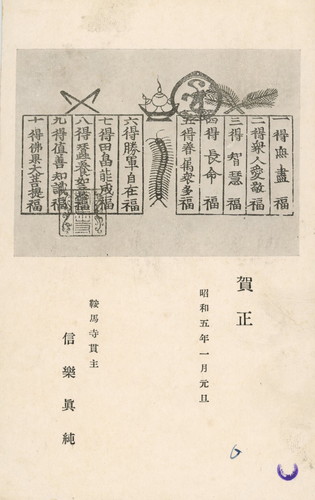 一得無盡福
二得衆人愛敬福
三得智慧福
四得長命福
五得眷属衆多福
六得勝軍自在福
七得田畠能成福
八得蚕養如意福
九得值善知識福
十得佛果大菩提福
賀正
昭和五年一月元旦
鞍馬寺貫主
信樂眞純